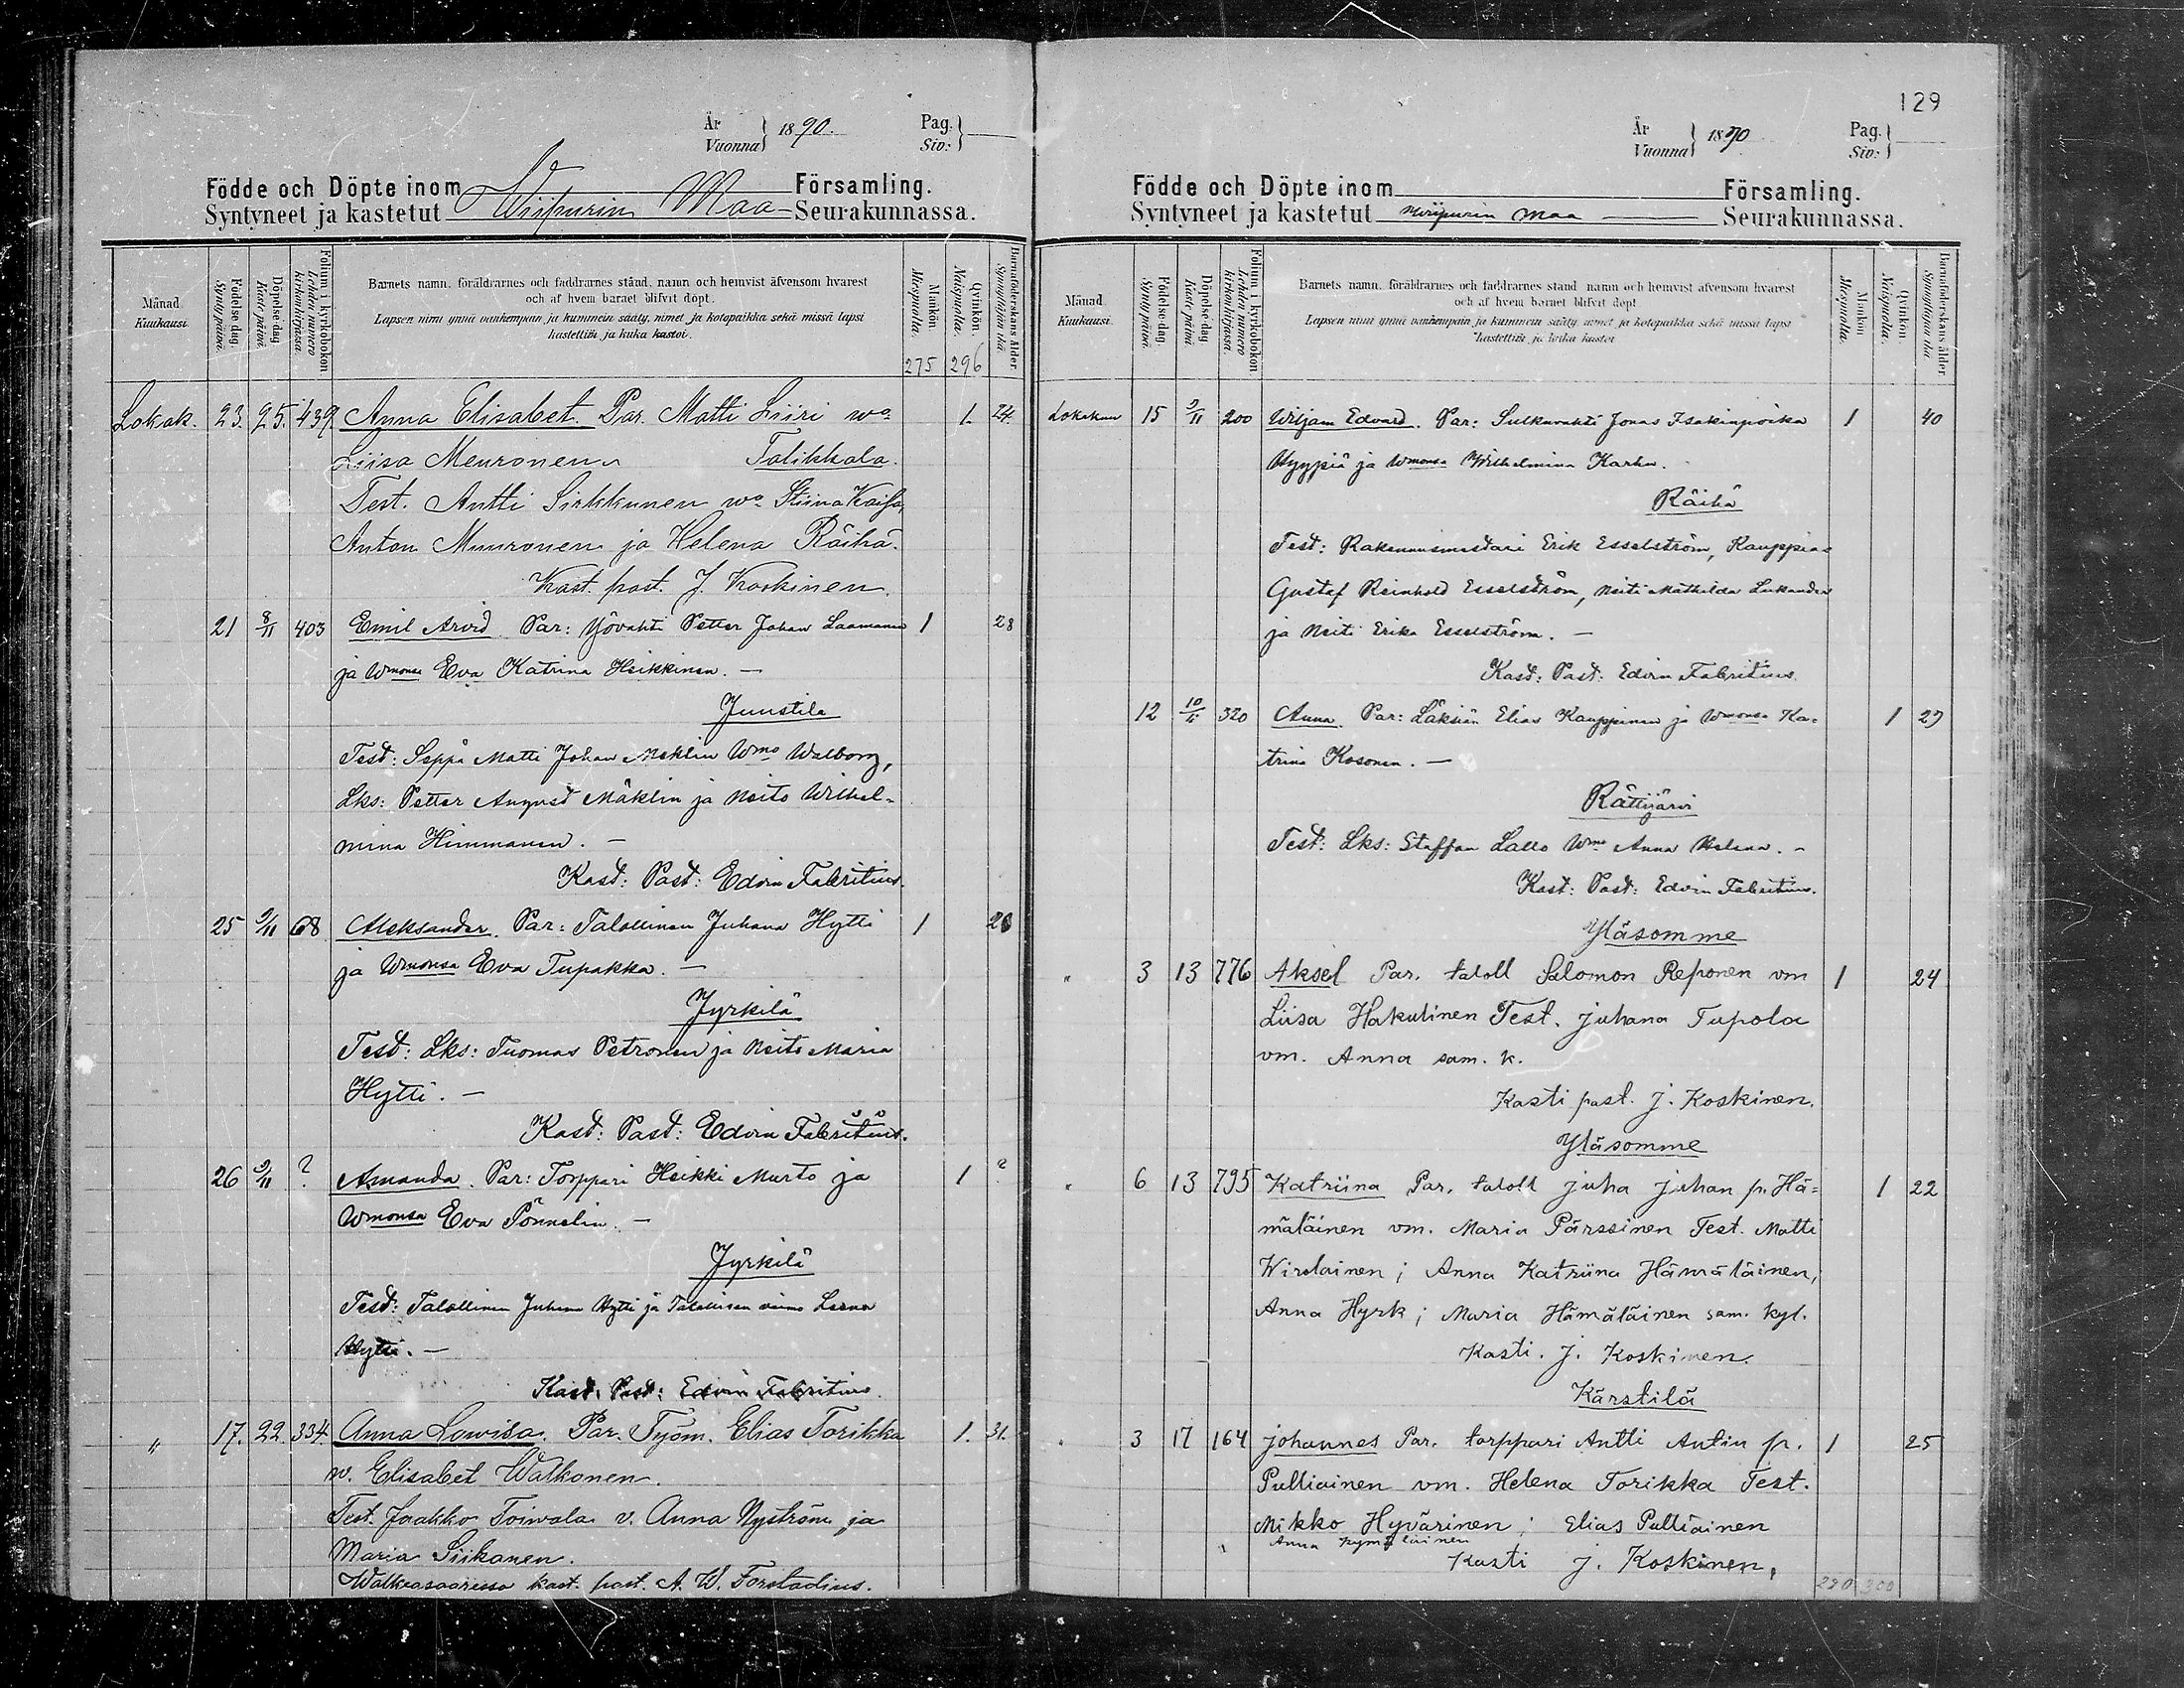 År
Vuonna } 1890.
Pag.
Siv: }
Födde och Döpte inom Församling.
Syntyneet ja kastetut Wiipurin Maa Seurakunnassa.
Månad.
Kuukausi.
Födelse-dag.
Synty-päivä.
Döpelse-dag
Kaste-päivä.
Folium i kyrkoboken
Lehden numero
kirkonkirjassa.
Barnets namn, föräldrarnes och faddrarnes stånd, namn och hemvist äfvensom hvarest
och af hvem barnet blifvit döpt.
Lapsen nimi ynnä vanhempain ja kummein sääty, nimet ja kotopaikka sekä missä lapsi
kastettiin ja kuka kastoi.
Mankön.
Miespuolta.
Qvinkön.
Naispuolta.
Barnaföderskans ålder.
Synnyttäjän ikä.
275 296
Lokak. 23. 25. 439. Anna Elisabet. Par. Matti Liiri wo 1. 24.
Liisa Meuronen Talikkala.
Test. Antti Sirkkunen wo Stiina Kaisa,
Anton Muuronen ja Helena Räihä.
Kast. past. J. Koskinen.
21 8/11 403 Emil Arvid. Par: Yövahti Petter Johan Laamanen 1 28
ja Wmonsa Eva Katrina Heikkinen. —
Juustila
Test: Seppä Matti Johan Meklin Wmo Walborg,
Lks: Petter August Mäklin ja Neito Wilhel-
mina Himmanen. —
Kast: Past: Edvin Fabritius.
25 9/11 68 Aleksander. Par: Talollinen Juhana Hytti 1
ja Wmonsa Eva Tupakka. —
Jyrkilä
Test: Lks: Tuomas Petronen ja Neito Maria
Hytti. —
Kast: Past: Edvin Fabritius.
26 9/11 ? Amanda. Par: Torppari Heikki Murto ja 1 ?
Wmonsa Eva Pönnelin. —
Jyrkilä
Test: Talollinen Juhana Hytti ja Talollisen vaimo Leena
Hytti. —
Kast: Past: Edvin Fabritius.
" 17. 22. 334. Anna Lowisa. Par. Työm. Elias Torikka 1. 31.
w. Elisabet Walkonen.
Test. Jaakko Toiwala v. Anna Nyström, ja
Maria Siikanen.
Walkeasaaressa kast. past. A. W. Forstadius.
129
År
Vuonna } 1890
Pag.
Siv: }
Födde och Döpte inom Församling.
Syntyneet ja kastetut Wiipurin maa Seurakunnassa.
Månad.
Kuukausi.
Födelse-dag.
Synty-päivä.
Döpelse-dag
Kaste-päivä.
Folium i kyrkoboken
Lehden numero
kirkonkirjassa.
Barnets namn, föräldrarnes och faddrarnes stånd, namn och hemvist äfvensom hvarest
och af hvem barnet blifvit döpt.
Lapsen nimi ynnä vanhempain ja kummein sääty, nimet ja kotopaikka sekä missä lapsi
kastettiin ja kuka kastoi
Mankön.
Miespuolta.
Qvinkön.
Naispuolta.
Barnaföderskans ålder.
Synnyttäjän ikä.
Lokakuu 15 9/11 200 Wiljam Edvard. Par: Sulkuvahti Jonas Isakinpoika 1 40
Hyypiä ja Wmonsa Wilhelmina Karhu.
Räihä
Test: Rakennusmestari Erik Esselström, Kauppias
Gustaf Reinhold Esselström, Neiti Mathilda Lukander
ja Neiti Erika Esselström. —
Kast: Past: Edvin Fabritius.
12 10/11 320 Anna. Par: Läksiän Elias Kauppinen ja Wmonsa Ka= 1 29
trina Kosonen. —
Rättijärvi
Test: Lks: Staffan Lallo Wmo Anna Helena. —
Kast: Past: Edvin Fabritius.
Yläsomme
" 3 13 776 Aksel Par. taloll Salomon Reponen vm 1 24
Liisa Hakulinen Test. Juhana Tupola
vm. Anna sam. k.
Kasti past. J. Koskinen.
Yläsomme
" 6 13 795 Katriina Par. taloll Juha Juhan p. Hä= 1 22
mäläinen vm. Maria Pärssinen Test. Matti
Wirolainen; Anna Katriina Hämäläinen;
Anna Hyrk; Maria Hämäläinen sam. kyl.
Kasti. J. Koskinen.
Kärstilä
" 3 17 164 Johannes Par. torppari Antti Antin p. 1 25
Pulliainen vm. Helena Torikka Test.
Mikko Hyvärinen; Elias Pulliainen
Anna Kymäläinen
Kasti J. Koskinen.
280 300